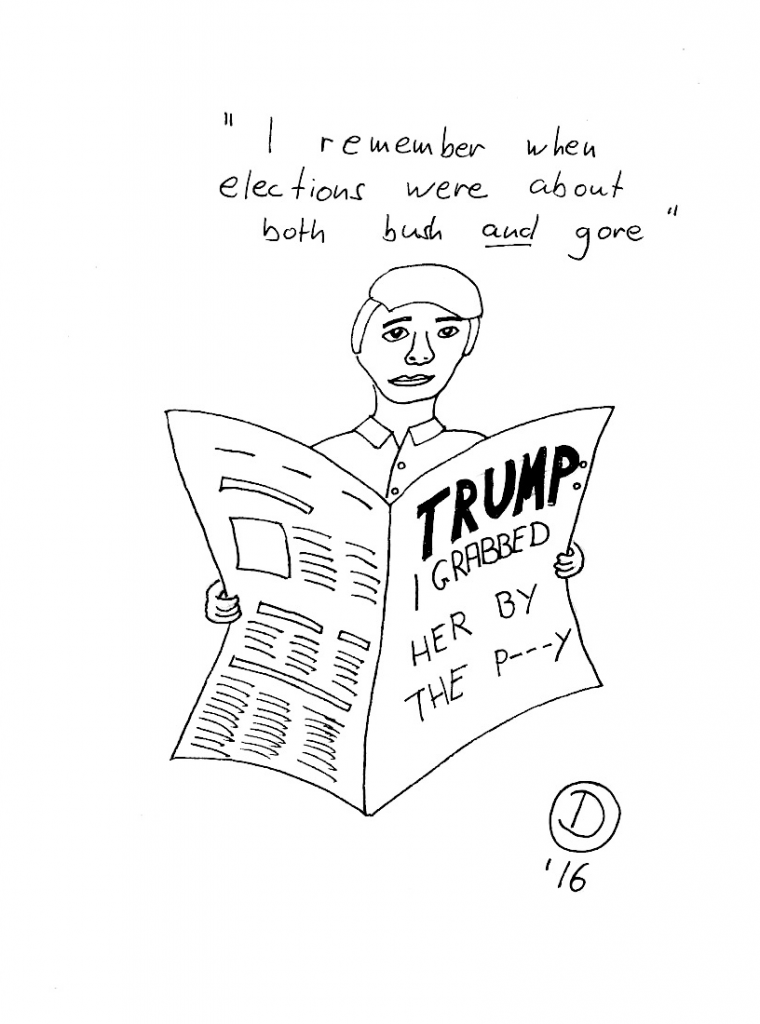 "I remember when
elections were about
both bush and gore"
TRUMP:
I GRABBED
HER BY
THE P---Y
D
'16